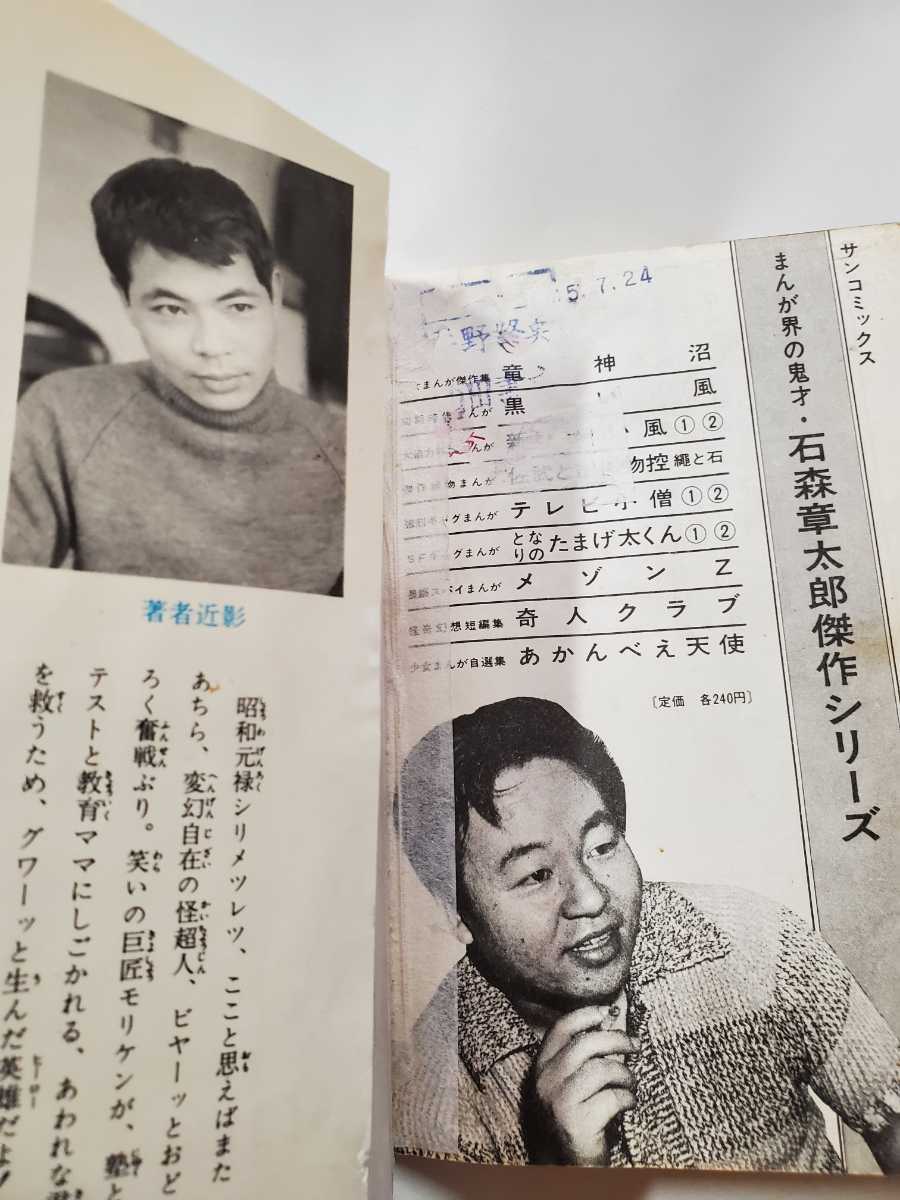 著者近影
昭和元禄シリメツレツ、ここと思えばまた
あちら、変幻自在の怪超人、ビヤーッとおど
ろく奮戦ぶり。笑いの巨匠モリケンが、塾と
テストと教育ママにしごかれる、あわれな
を救うため、グワーッと生んだ英雄だよ!
サンコミックス
まんが界の鬼才・石森章太郎傑作シリーズ
5.7.24
まんが傑作集 竜神沼
まんが 黒い風
んが 風①②
まんが 佐武と 物控 縄と石
グまんが テレビ小僧①②
SFギャグまんが となりのたまげ太くん①②
スパイまんが メゾンZ
怪奇幻想短編集 奇人クラブ
少女まんが自選集 あかんべえ天使
〔定価 各240円〕